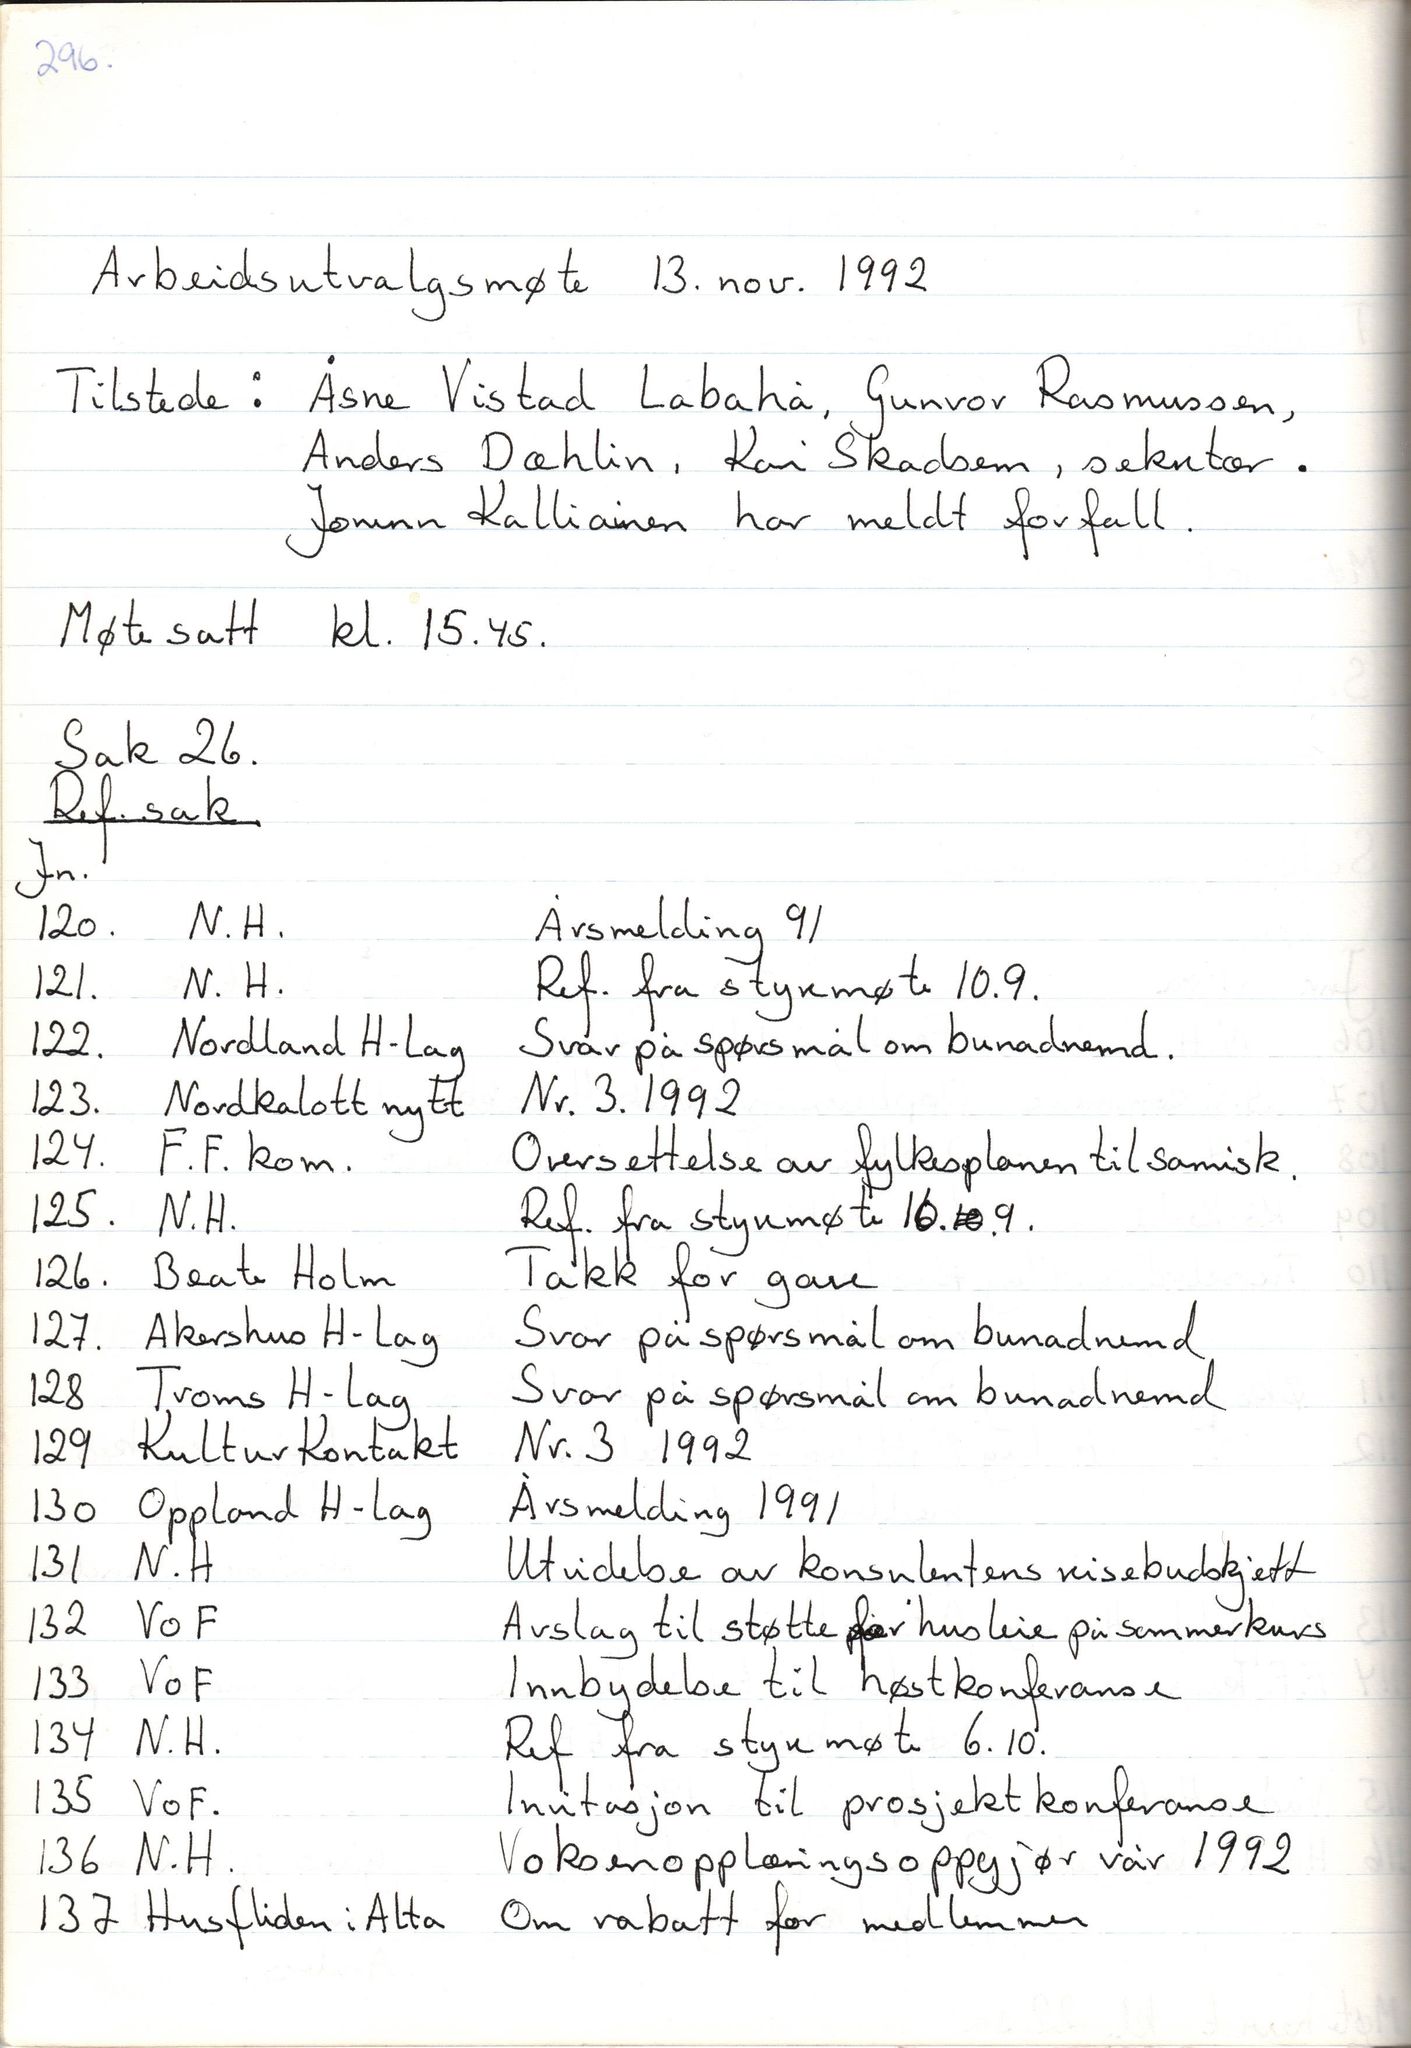 296.
Arbeidsutvalgsmøte 13. nov. 1992
Tilstede: Åsne Vistad Labahå, Gunvor Rasmussen,
Anders Dæhlin, Kari Skadsem, sekretær.
Jorunn Kalliainen har meldt forfall.
Møte satt kl. 15.45.
Sak 26.
Ref. sak
Jn.
120. N.H. Årsmelding 91
121. N.H. Ref. fra styremøte 10.9.
122. Nordland H-Lag Svar på spørsmål om bunadnemd.
123. Nordkalott nytt Nr. 3. 1992
124. F.F. kom. Oversettelse av fylkesplanen til samisk.
125. N.H. Ref. fra styremøte 16.9.
126. Beate Holm Takk for gave
127. Akershus H-Lag Svar på spørsmål om bunadnemd
128 Troms H-lag Svar på spørsmål om bunadnemd
129 KulturKontakt Nr. 3 1992
130 Oppland H-lag Årsmelding 1991
131 N.H Utvidelse av konsulentens reisebudskjett
132 VoF Avslag til støtte for husleie på sommerkurs
133 VoF Innbydelse til høstkonferanse
134 N.H. Ref fra styremøte 6.10.
135 VoF. Invitasjon til prosjektkonferanse
136 N.H. Voksenopplæringsoppgjør vår 1992
137 Husfliden i Alta Om rabatt for medlemmer